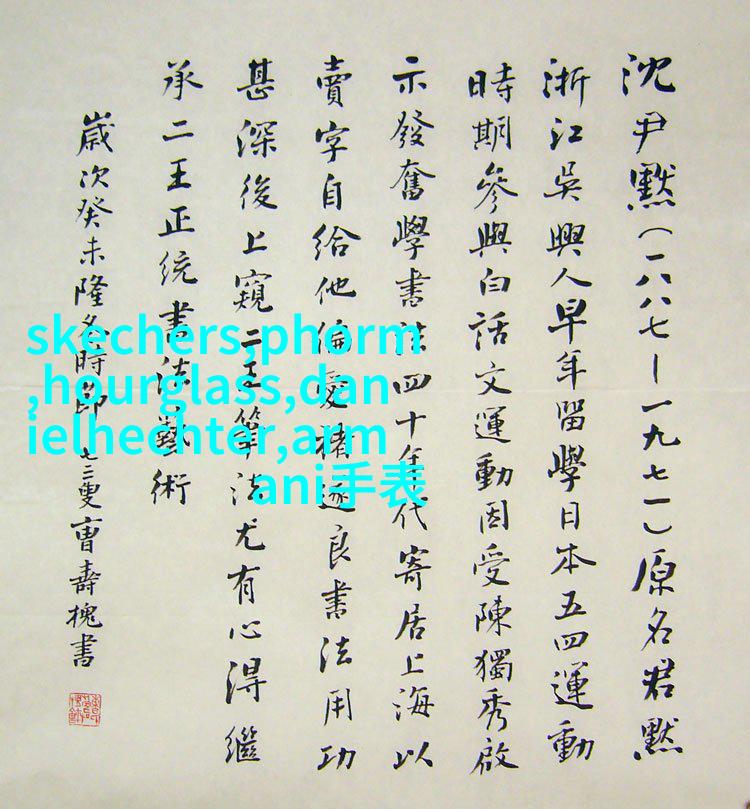 沈尹默(一八八七—一九七一)原名君默
浙江吳興人早年留學日本五四運動
時期參與白話文運動因受陳獨秀啟
示發奮學書法四十年代寄居上海以
賣字自給他偏愛褚遂良書法用功
甚深後上窺二王筆法尤有心得繼
承二王正統書法藝術
歲次癸未隆冬時節七三叟曹壽槐書
skechers,phorm
,hourglass,dan
ielhechter,arm
ani手表